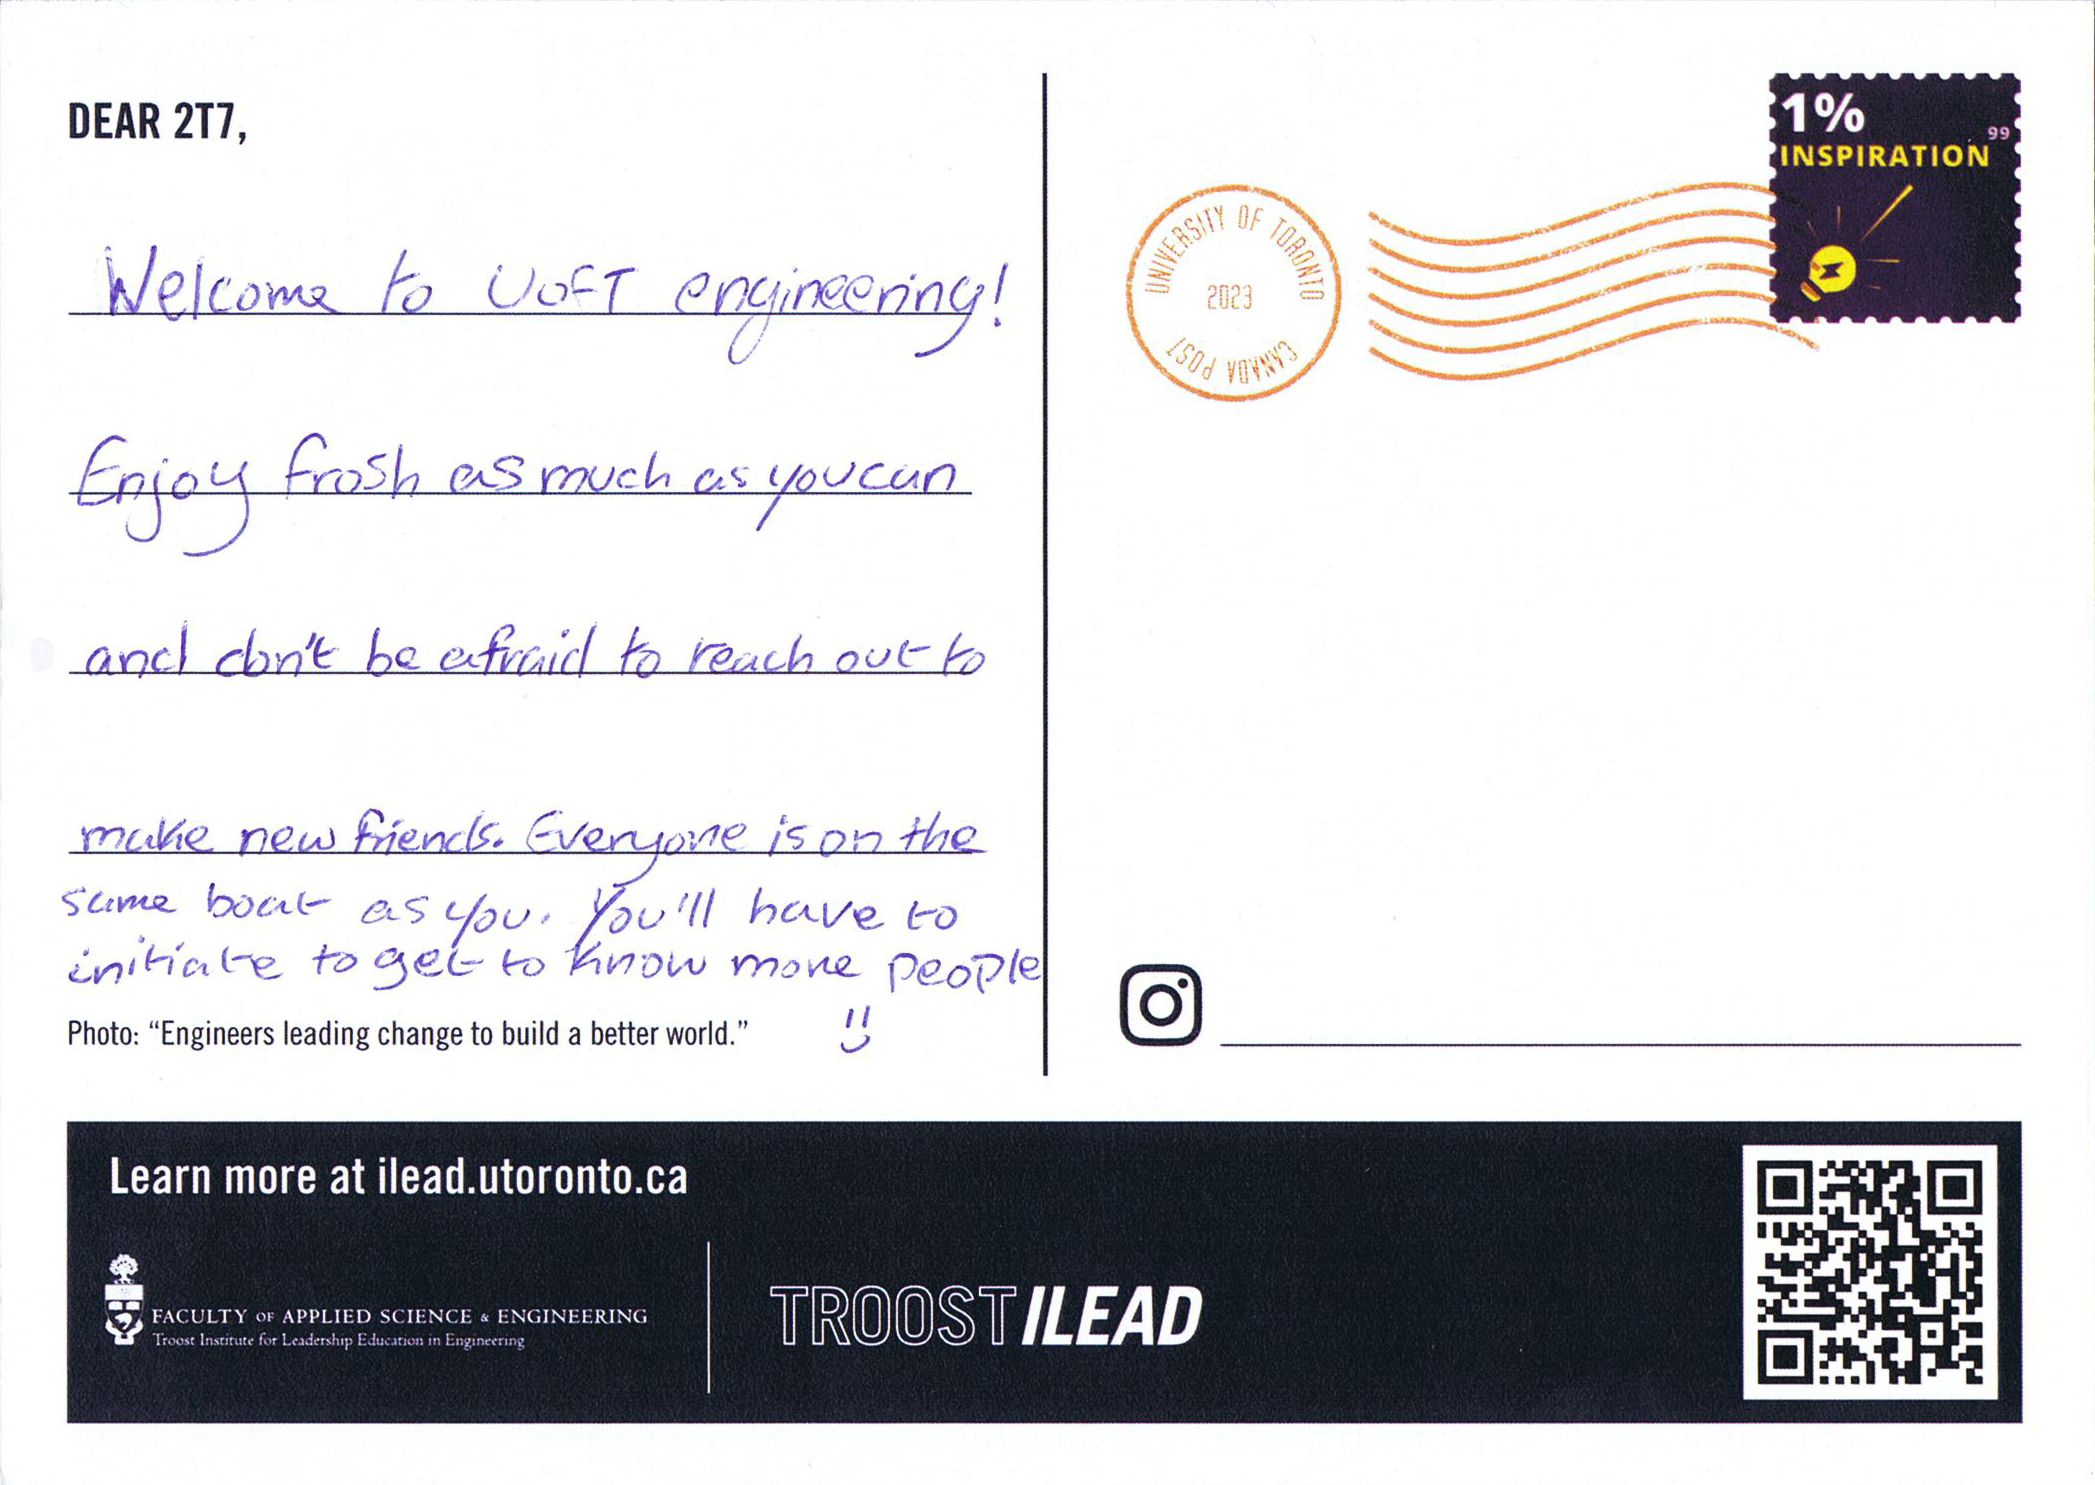 DEAR 2T7,
Welcome to UofT engineering!
Enjoy frosh as much as you can
and don't be afraid to reach out to
make new friends. Everyone is on the
same boat as you. You'll have to
initiate to get to know more people
Photo: “Engineers leading change to build a better world.”
1%
99
INSPIRATION
UNIVERSITY OF TORONTO
2023
CANADA POST
Learn more at ilead.utoronto.ca
FACULTY OF APPLIED SCIENCE & ENGINEERING
Troost Institute for Leadership Education in Engineering
TROOST ILEAD